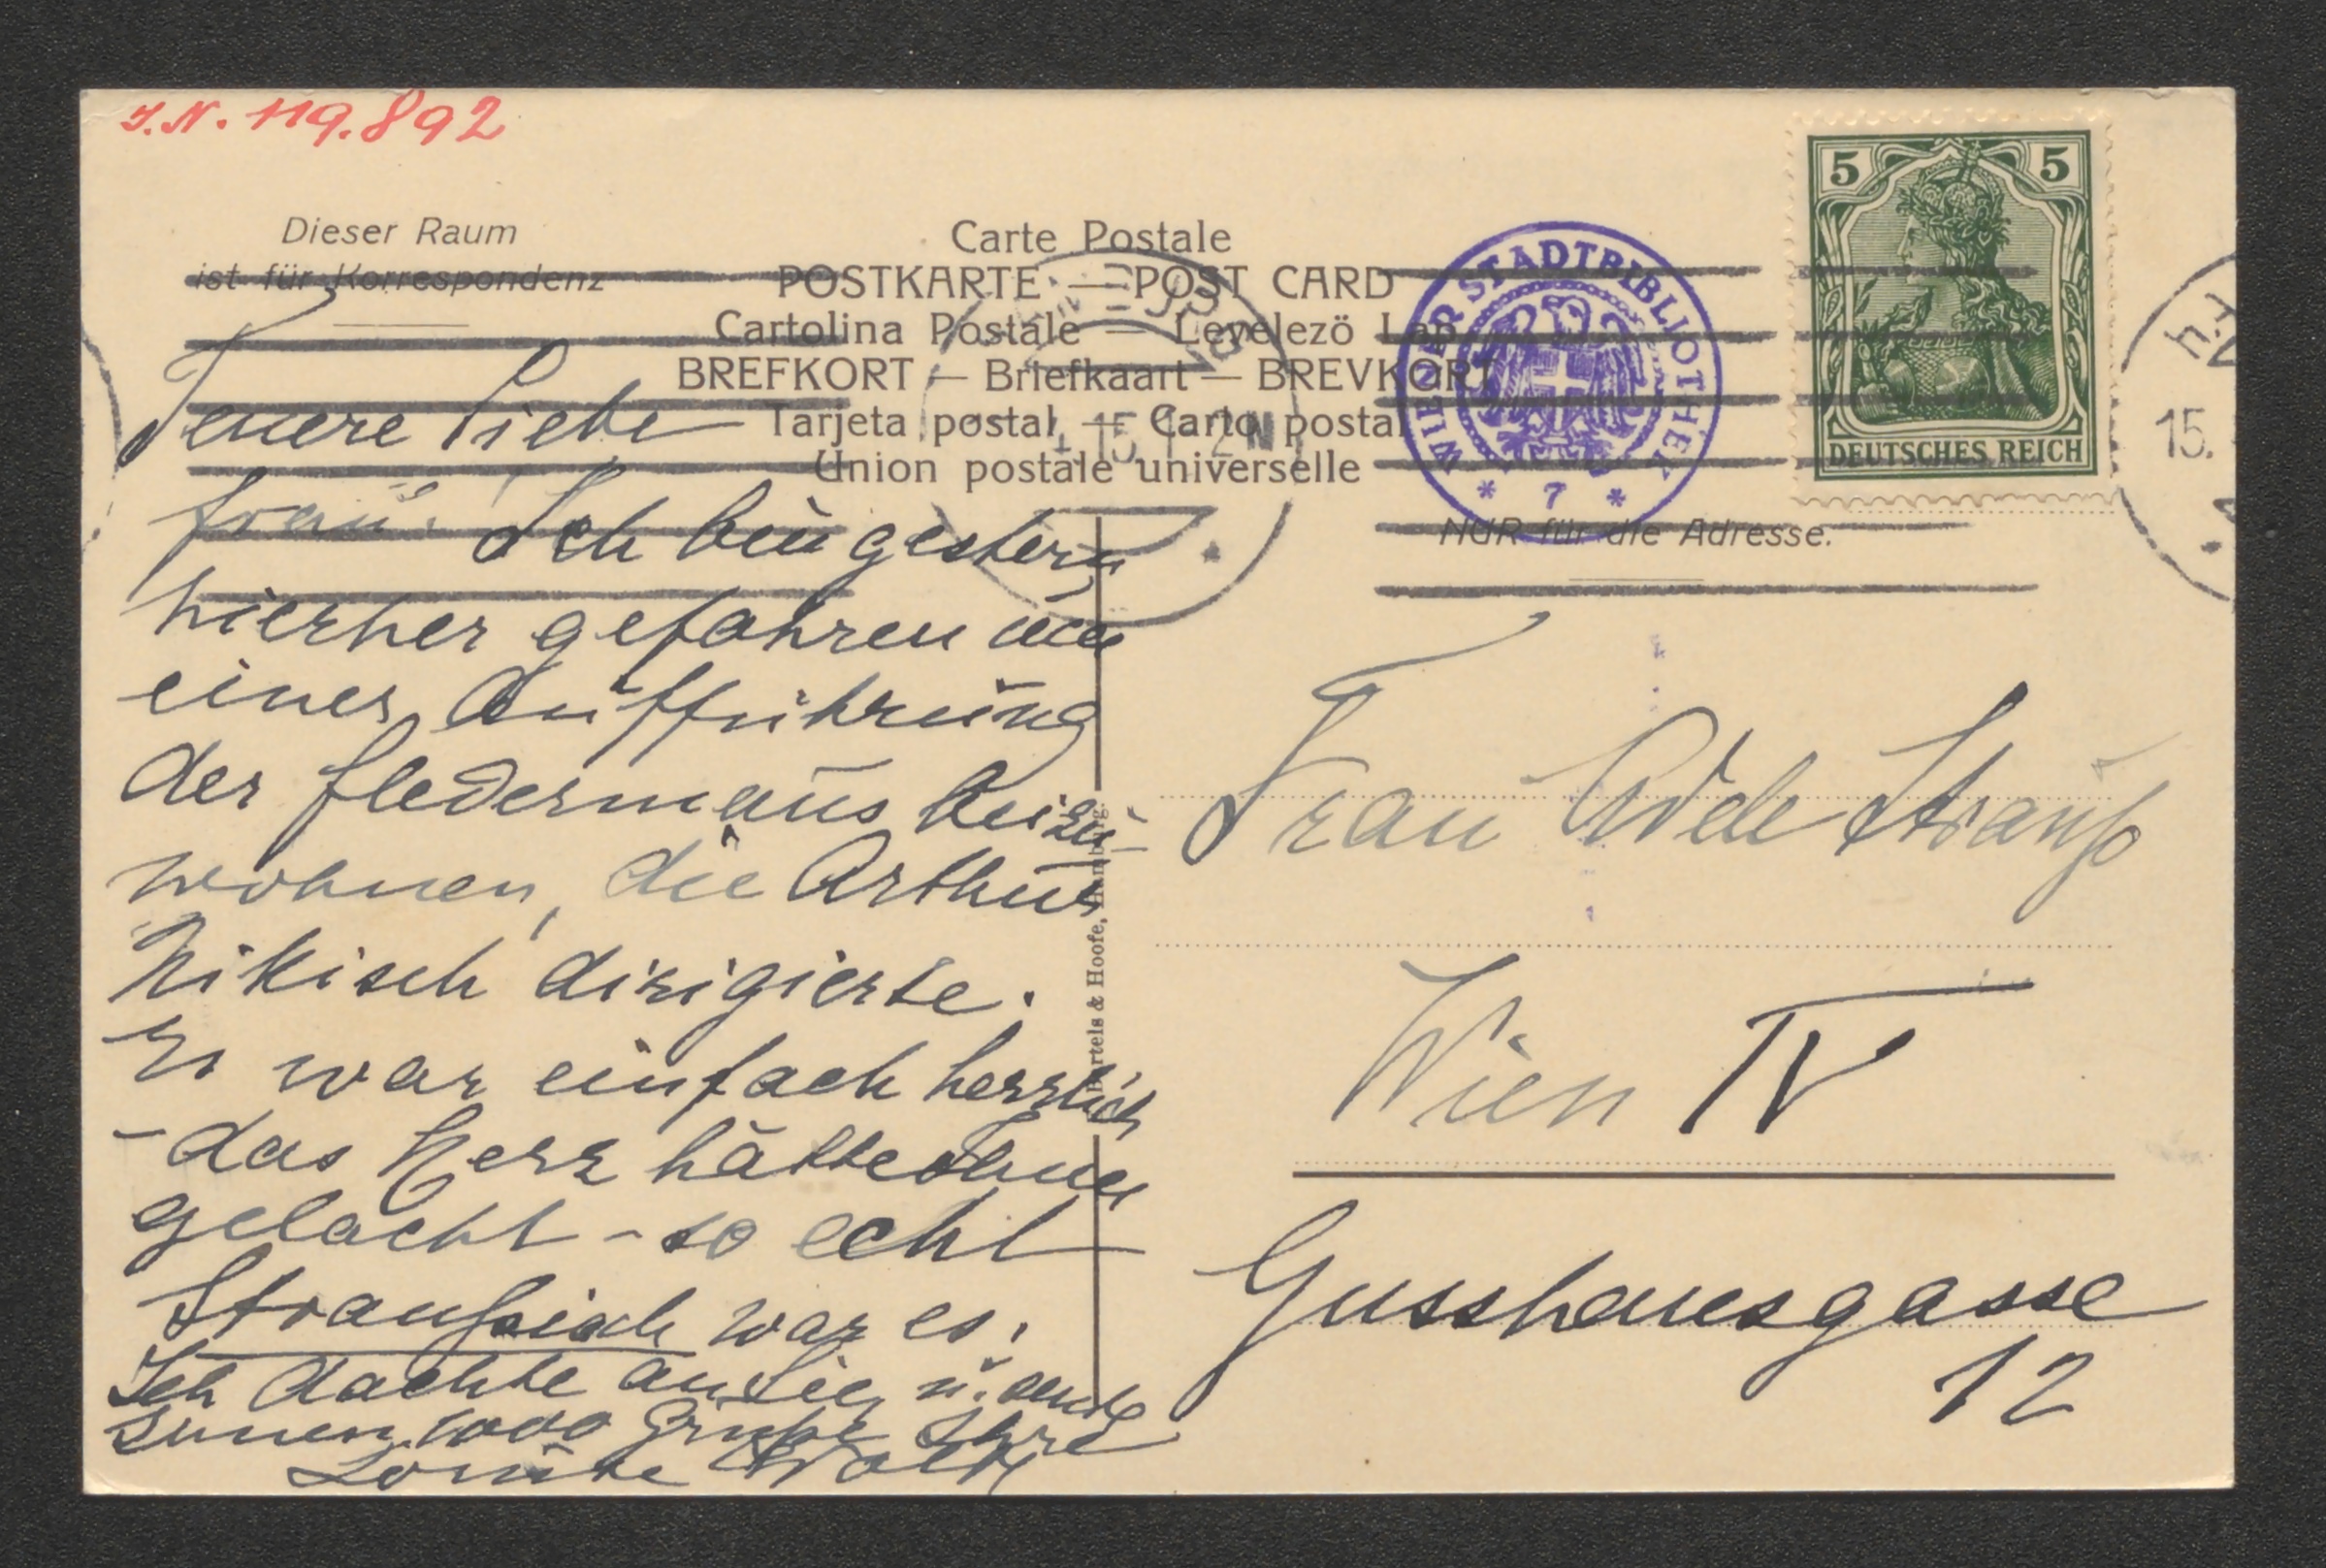 J.N. 119.892
Dieser Raum
ist für Korrespondenz
Carte Postale
POSTKARTE — POST CARD
Cartolina Postale — Levelezö Lap
BREFKORT — Briefkaart — BREVKORT
Tarjeta postal — Carto postal
Union postale universelle
WIENER STADTBIBLIOTHEK
* 7 *
5 5
DEUTSCHES REICH
15.
NUR für die Adresse.
Teuere Liebe
Frau! Ich bin gestern
hierher gefahren um
einer Aufführung
der Fledermaus beizu-
wohnen, die Arthur
Nikisch dirigierte.
Es war einfach herrlich
- das Herz hätte ihnen
gelacht - so echt
Straußisch war es.
Ich dachte an Sie, u. sende
Ihnen 1000 Grüße Ihre
Louise Wolff
Bartels & Hoofe, Hamburg.
Frau Adele Strauß
Wien IV
Gusshausgasse
12